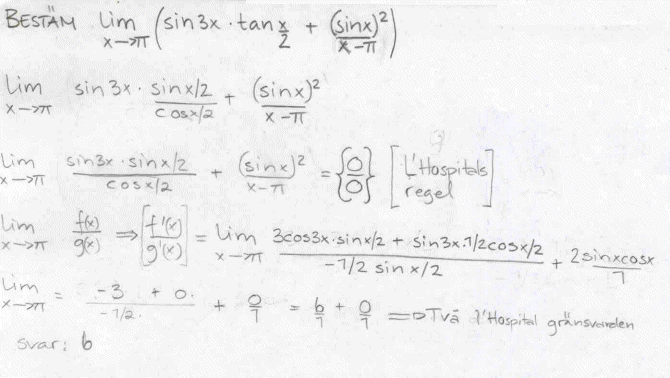 BESTÄM lim x→π (sin3x · tan x/2 + (sinx)²/(x-π))
lim x→π sin3x · sin x/2 / cos x/2 + (sinx)²/(x-π)
lim x→π sin3x · sin x/2 / cos x/2 + (sinx)²/(x-π) = {0/0} [L'Hospitals regel]
lim x→π f(x)/g(x) ⇒ [f'(x)/g'(x)] = lim x→π (3cos3x·sin x/2 + sin3x·1/2cosx/2)/(-1/2 sin x/2) + 2sinxcosx/1
lim x→π = (-3 + 0)/(-1/2) + 0/1 = 6/1 + 0/1 ⇒ Två l'Hospital gränsvärden
svar: 6